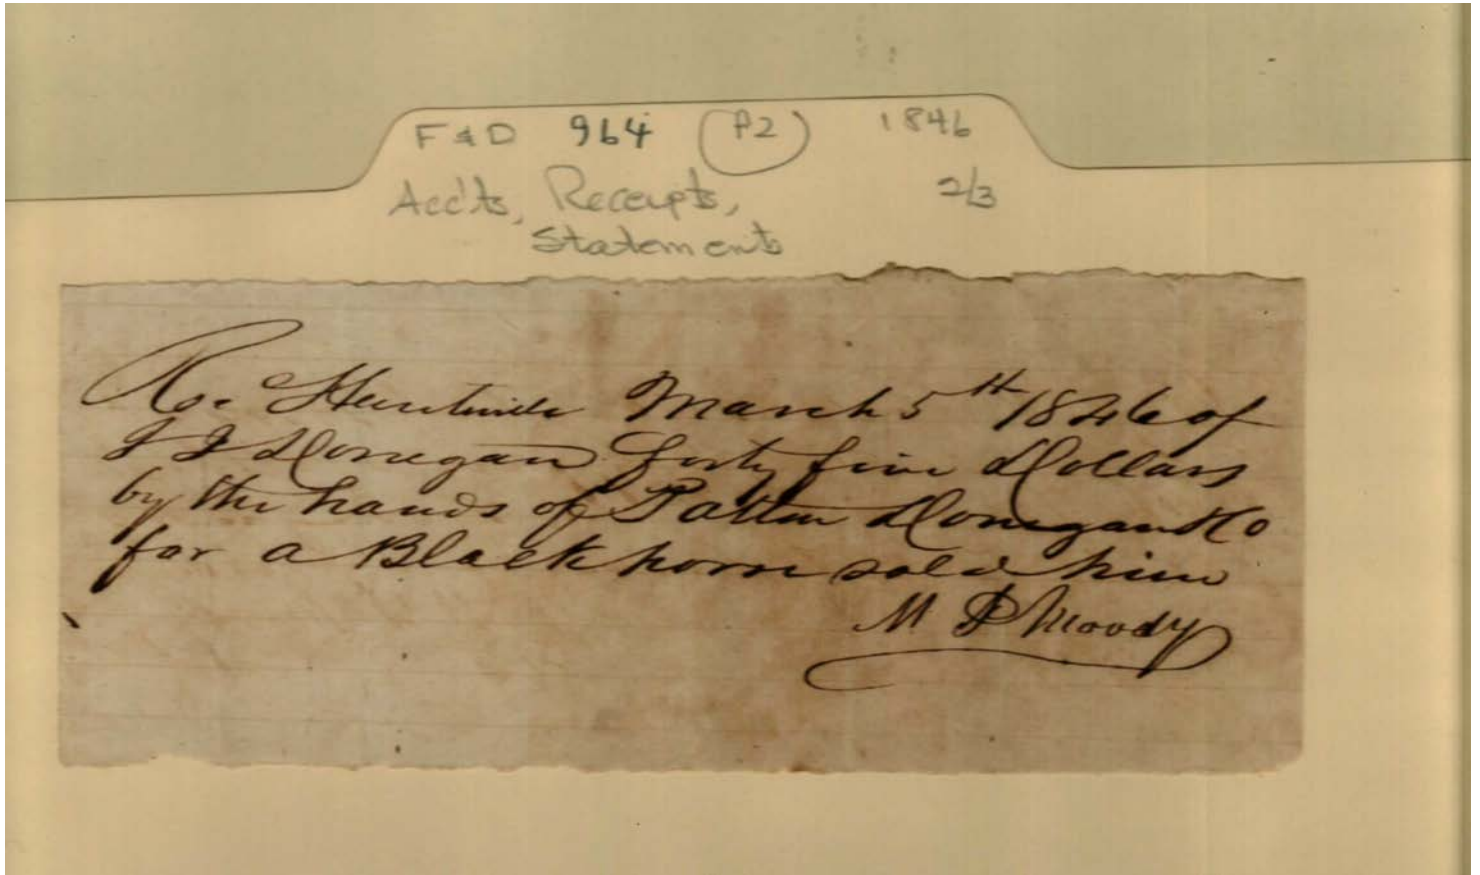 F & D 964 (P2) 1846
Acc'ts, Receipts, 2/3
Statements
Rc. Huntsville March 5th 1846 of
J J Donegan forty five Dollars
by the hands of Patton Donegan & Co
for a Black horse sold him
M P Moody